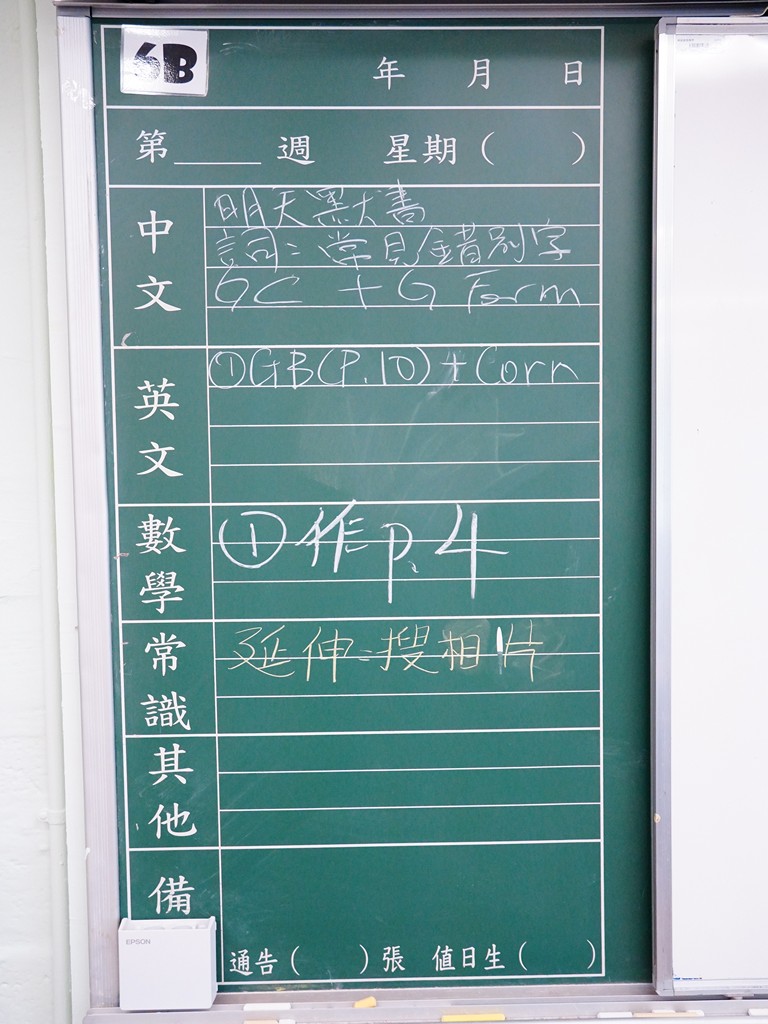 6B
年 月 日
第____週 星期( )
中文
明天默書
詞:常見錯別字
GC + G Form
英文
①GB(P.10)+Corn
數學
①作p.4
常識
延伸:搜相片
其他
備
通告( )張 值日生( )
EPSON